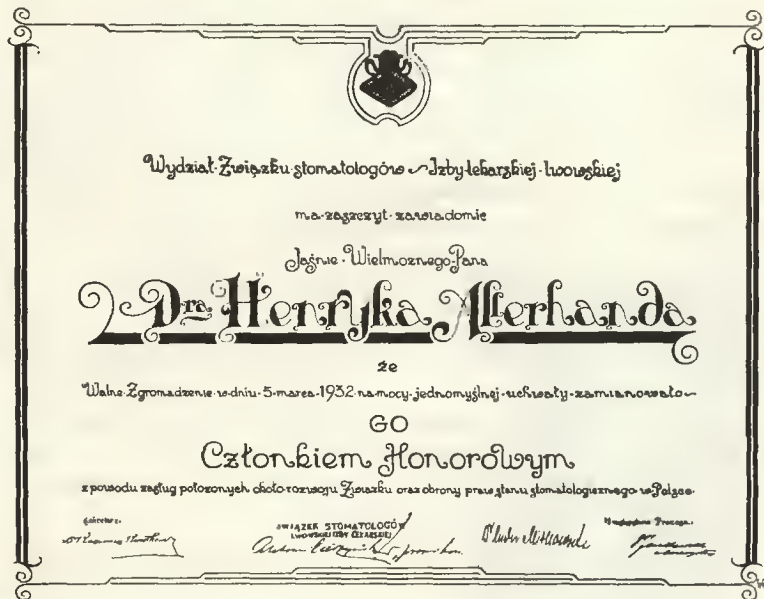 Wydział Związku stomatologów Izby lekarskiej lwowskiej
ma zaszczyt zawiadomić
Jaśnie Wielmożnego Pana
Dra Henryka Allerhanda
że
Walne Zgromadzenie w dniu 5 marca 1932 na mocy jednomyślnej uchwały zamianowało
GO
Członkiem Honorowym
z powodu zasług położonych około rozwoju Związku oraz obrony praw stanu stomatologicznego w Polsce
ZWIĄZEK STOMATOLOGÓW
LWOWSKIEJ IZBY LEKARSKIEJ